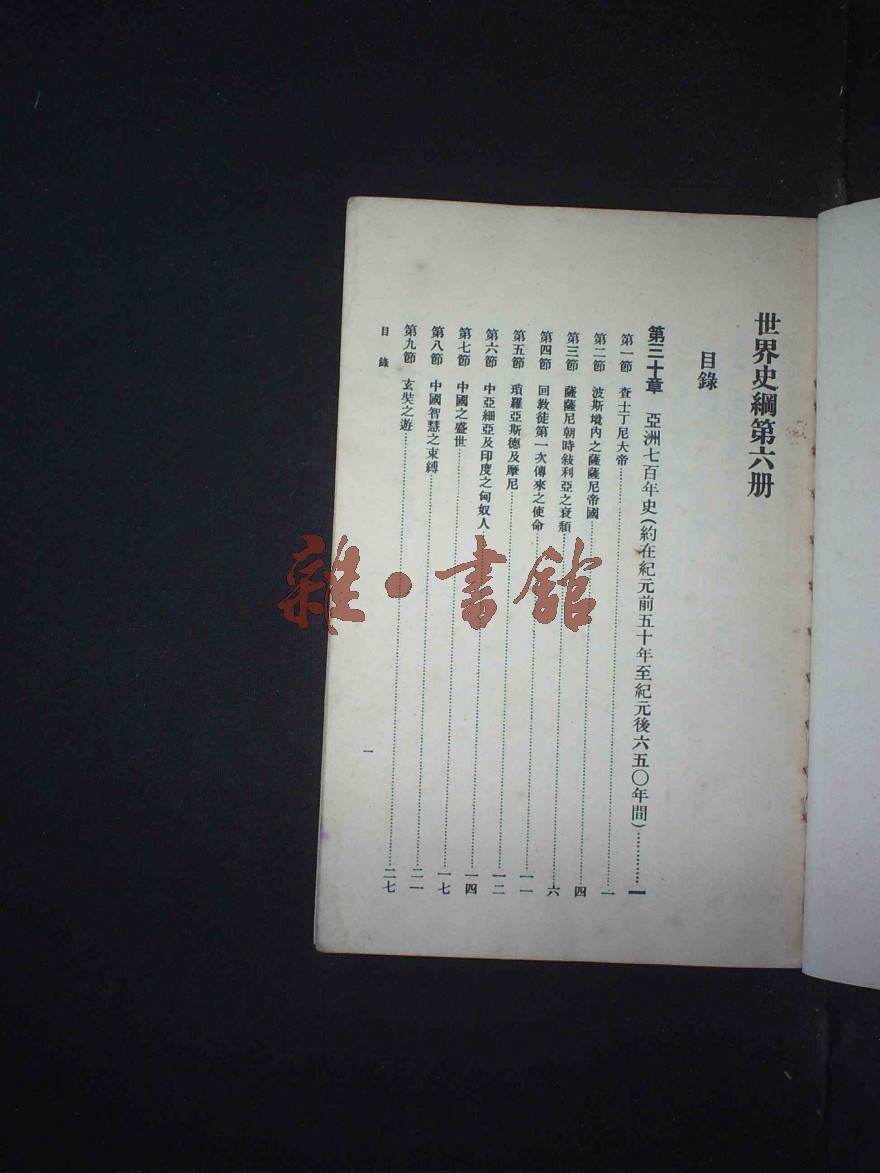 世界史綱第六册
目錄
第三十章 亞洲七百年史（約在紀元前五十年至紀元後六五〇年間）…………一
第一節 查士丁尼大帝…………一
第二節 波斯境內之薩薩尼帝國…………四
第三節 薩薩尼朝時敍利亞之衰頹…………六
第四節 回教徒第一次傳來之使命…………一一
第五節 瑣羅亞斯德及摩尼…………一二
第六節 中亞細亞及印度之匈奴人…………一四
第七節 中國之盛世…………一七
第八節 中國智慧之束縛…………二一
第九節 玄奘之遊…………二七
目錄
一
雜·書館